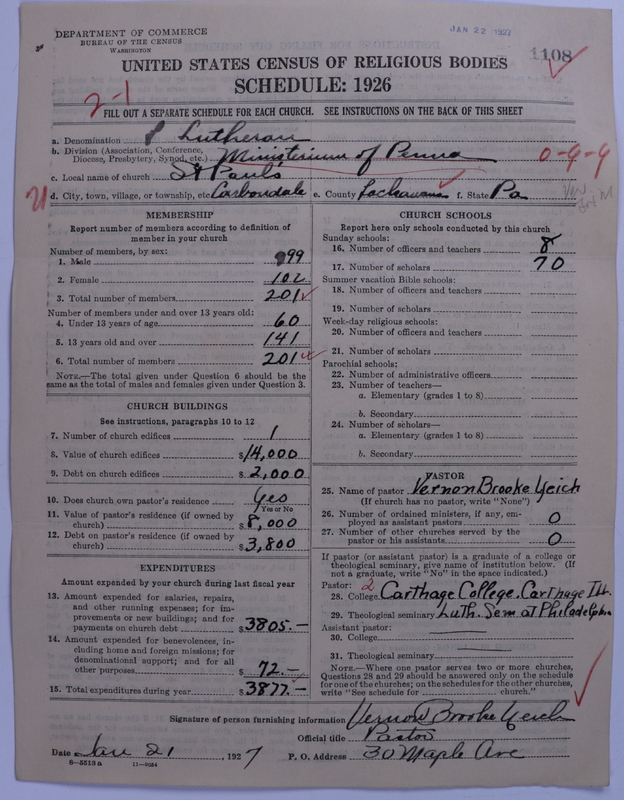 DEPARTMENT OF COMMERCE
BUREAU OF THE CENSUS
WASHINGTON
JAN 22 1927
1108
UNITED STATES CENSUS OF RELIGIOUS BODIES
SCHEDULE: 1926
2-1
FILL OUT A SEPARATE SCHEDULE FOR EACH CHURCH. SEE INSTRUCTIONS ON THE BACK OF THIS SHEET
a. Denomination Lutheran
b. Division (Association, Conference, Diocese, Presbytery, Synod, etc.) Ministerium of Penna
0-9-9
c. Local name of church St Paul's
21
d. City, town, village, or township, etc. Carbondale e. County Lackawanna f. State Pa
MEMBERSHIP
Report number of members according to definition of
member in your church
Number of members, by sex:
1. Male 99
2. Female 102
3. Total number of members 201
Number of members under and over 13 years old:
4. Under 13 years of age 60
5. 13 years old and over 141
6. Total number of members 201
NOTE.—The total given under Question 6 should be the
same as the total of males and females given under Question 3.
CHURCH BUILDINGS
See instructions, paragraphs 10 to 12
7. Number of church edifices 1
8. Value of church edifices $14,000
9. Debt on church edifices $2,000
10. Does church own pastor's residence Yes
Yes or No
11. Value of pastor's residence (if owned by
church) $8,000
12. Debt on pastor's residence (if owned by
church) $3,800
EXPENDITURES
Amount expended by your church during last fiscal year
13. Amount expended for salaries, repairs,
and other running expenses; for im-
provements or new buildings; and for
payments on church debt $3805.—
14. Amount expended for benevolences, in-
cluding home and foreign missions; for
denominational support; and for all
other purposes $72.—
15. Total expenditures during year $3877.—
CHURCH SCHOOLS
Report here only schools conducted by this church
Sunday schools:
16. Number of officers and teachers 8
17. Number of scholars 70
Summer vacation Bible schools:
18. Number of officers and teachers
19. Number of scholars
Week-day religious schools:
20. Number of officers and teachers
21. Number of scholars
Parochial schools:
22. Number of administrative officers
23. Number of teachers—
a. Elementary (grades 1 to 8)
b. Secondary
24. Number of scholars—
a. Elementary (grades 1 to 8)
b. Secondary
PASTOR
25. Name of pastor Vernon Brooke Yeich
(If church has no pastor, write "None")
26. Number of ordained ministers, if any, em-
ployed as assistant pastors 0
27. Number of other churches served by the
pastor or his assistants 0
If pastor (or assistant pastor) is a graduate of a college or
theological seminary, give name of institution below. (If
not a graduate, write "No" in the space indicated.)
Pastor: 2
28. College Carthage College. Carthage Ill.
29. Theological seminary Luth. Sem at Philadelphia
Assistant pastor:
30. College
31. Theological seminary
NOTE.—Where one pastor serves two or more churches,
Questions 28 and 29 should be answered only on the schedule
for one of the churches; on the schedules for the other churches,
write "See schedule for church."
Signature of person furnishing information Vernon Brooke Yeich
Official title Pastor
Date Jan 21, 1927 P. O. Address 30 Maple Ave
8—5513 a 11—9034